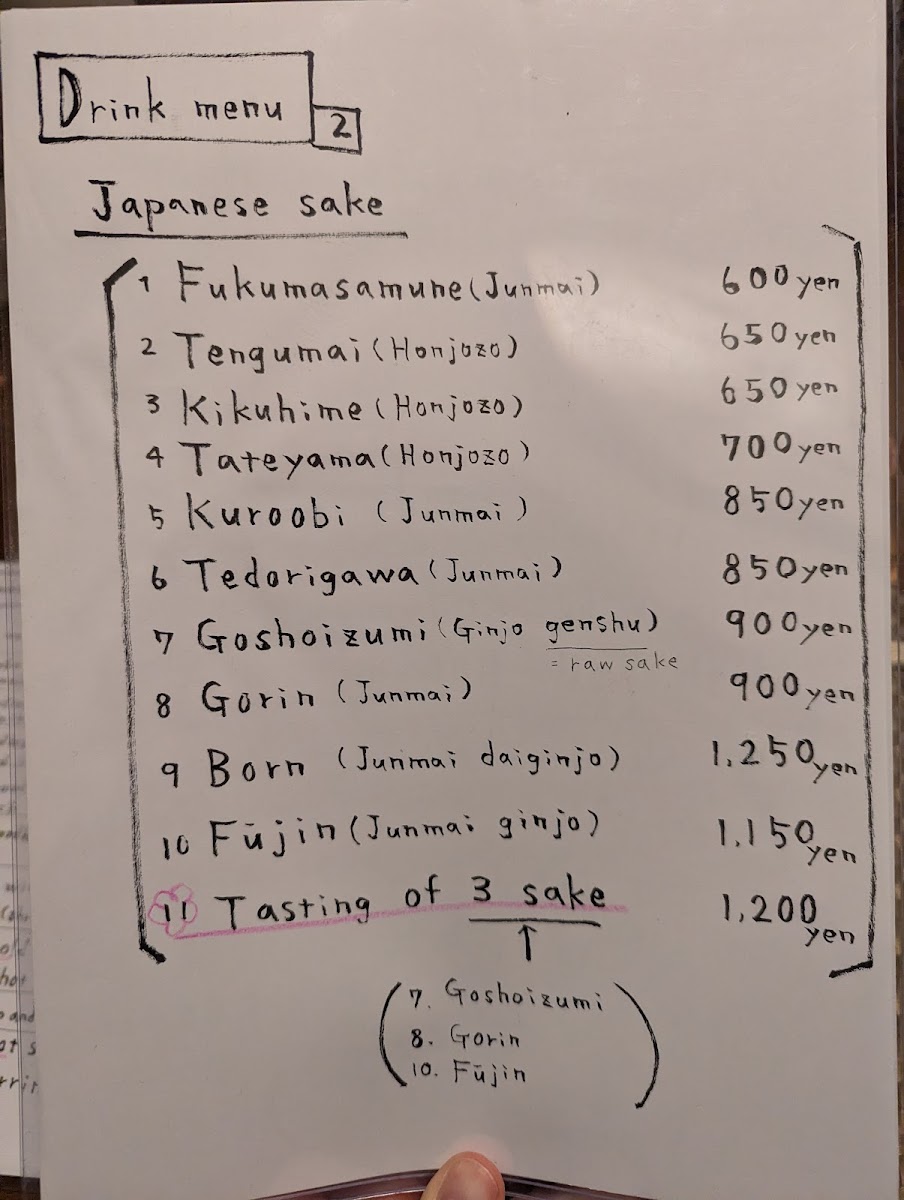 Drink menu 2
Japanese sake
1 Fukumasamune (Junmai) 600 yen
2 Tengumai (Honjozo) 650 yen
3 Kikuhime (Honjozo) 650 yen
4 Tateyama (Honjozo) 700 yen
5 Kuroobi (Junmai) 850 yen
6 Tedorigawa (Junmai) 850 yen
7 Goshoizumi (Ginjo genshu) 900 yen
= raw sake
8 Gorin (Junmai) 900 yen
9 Born (Junmai daiginjo) 1,250 yen
10 Fūjin (Junmai ginjo) 1,150 yen
11 Tasting of 3 sake 1,200 yen
↑
(7. Goshoizumi
8. Gorin
10. Fūjin)